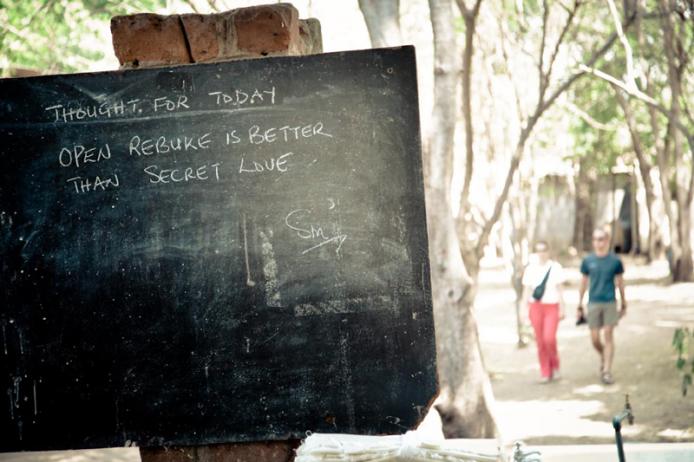 THOUGHT FOR TODAY
OPEN REBUKE IS BETTER
THAN SECRET LOVE